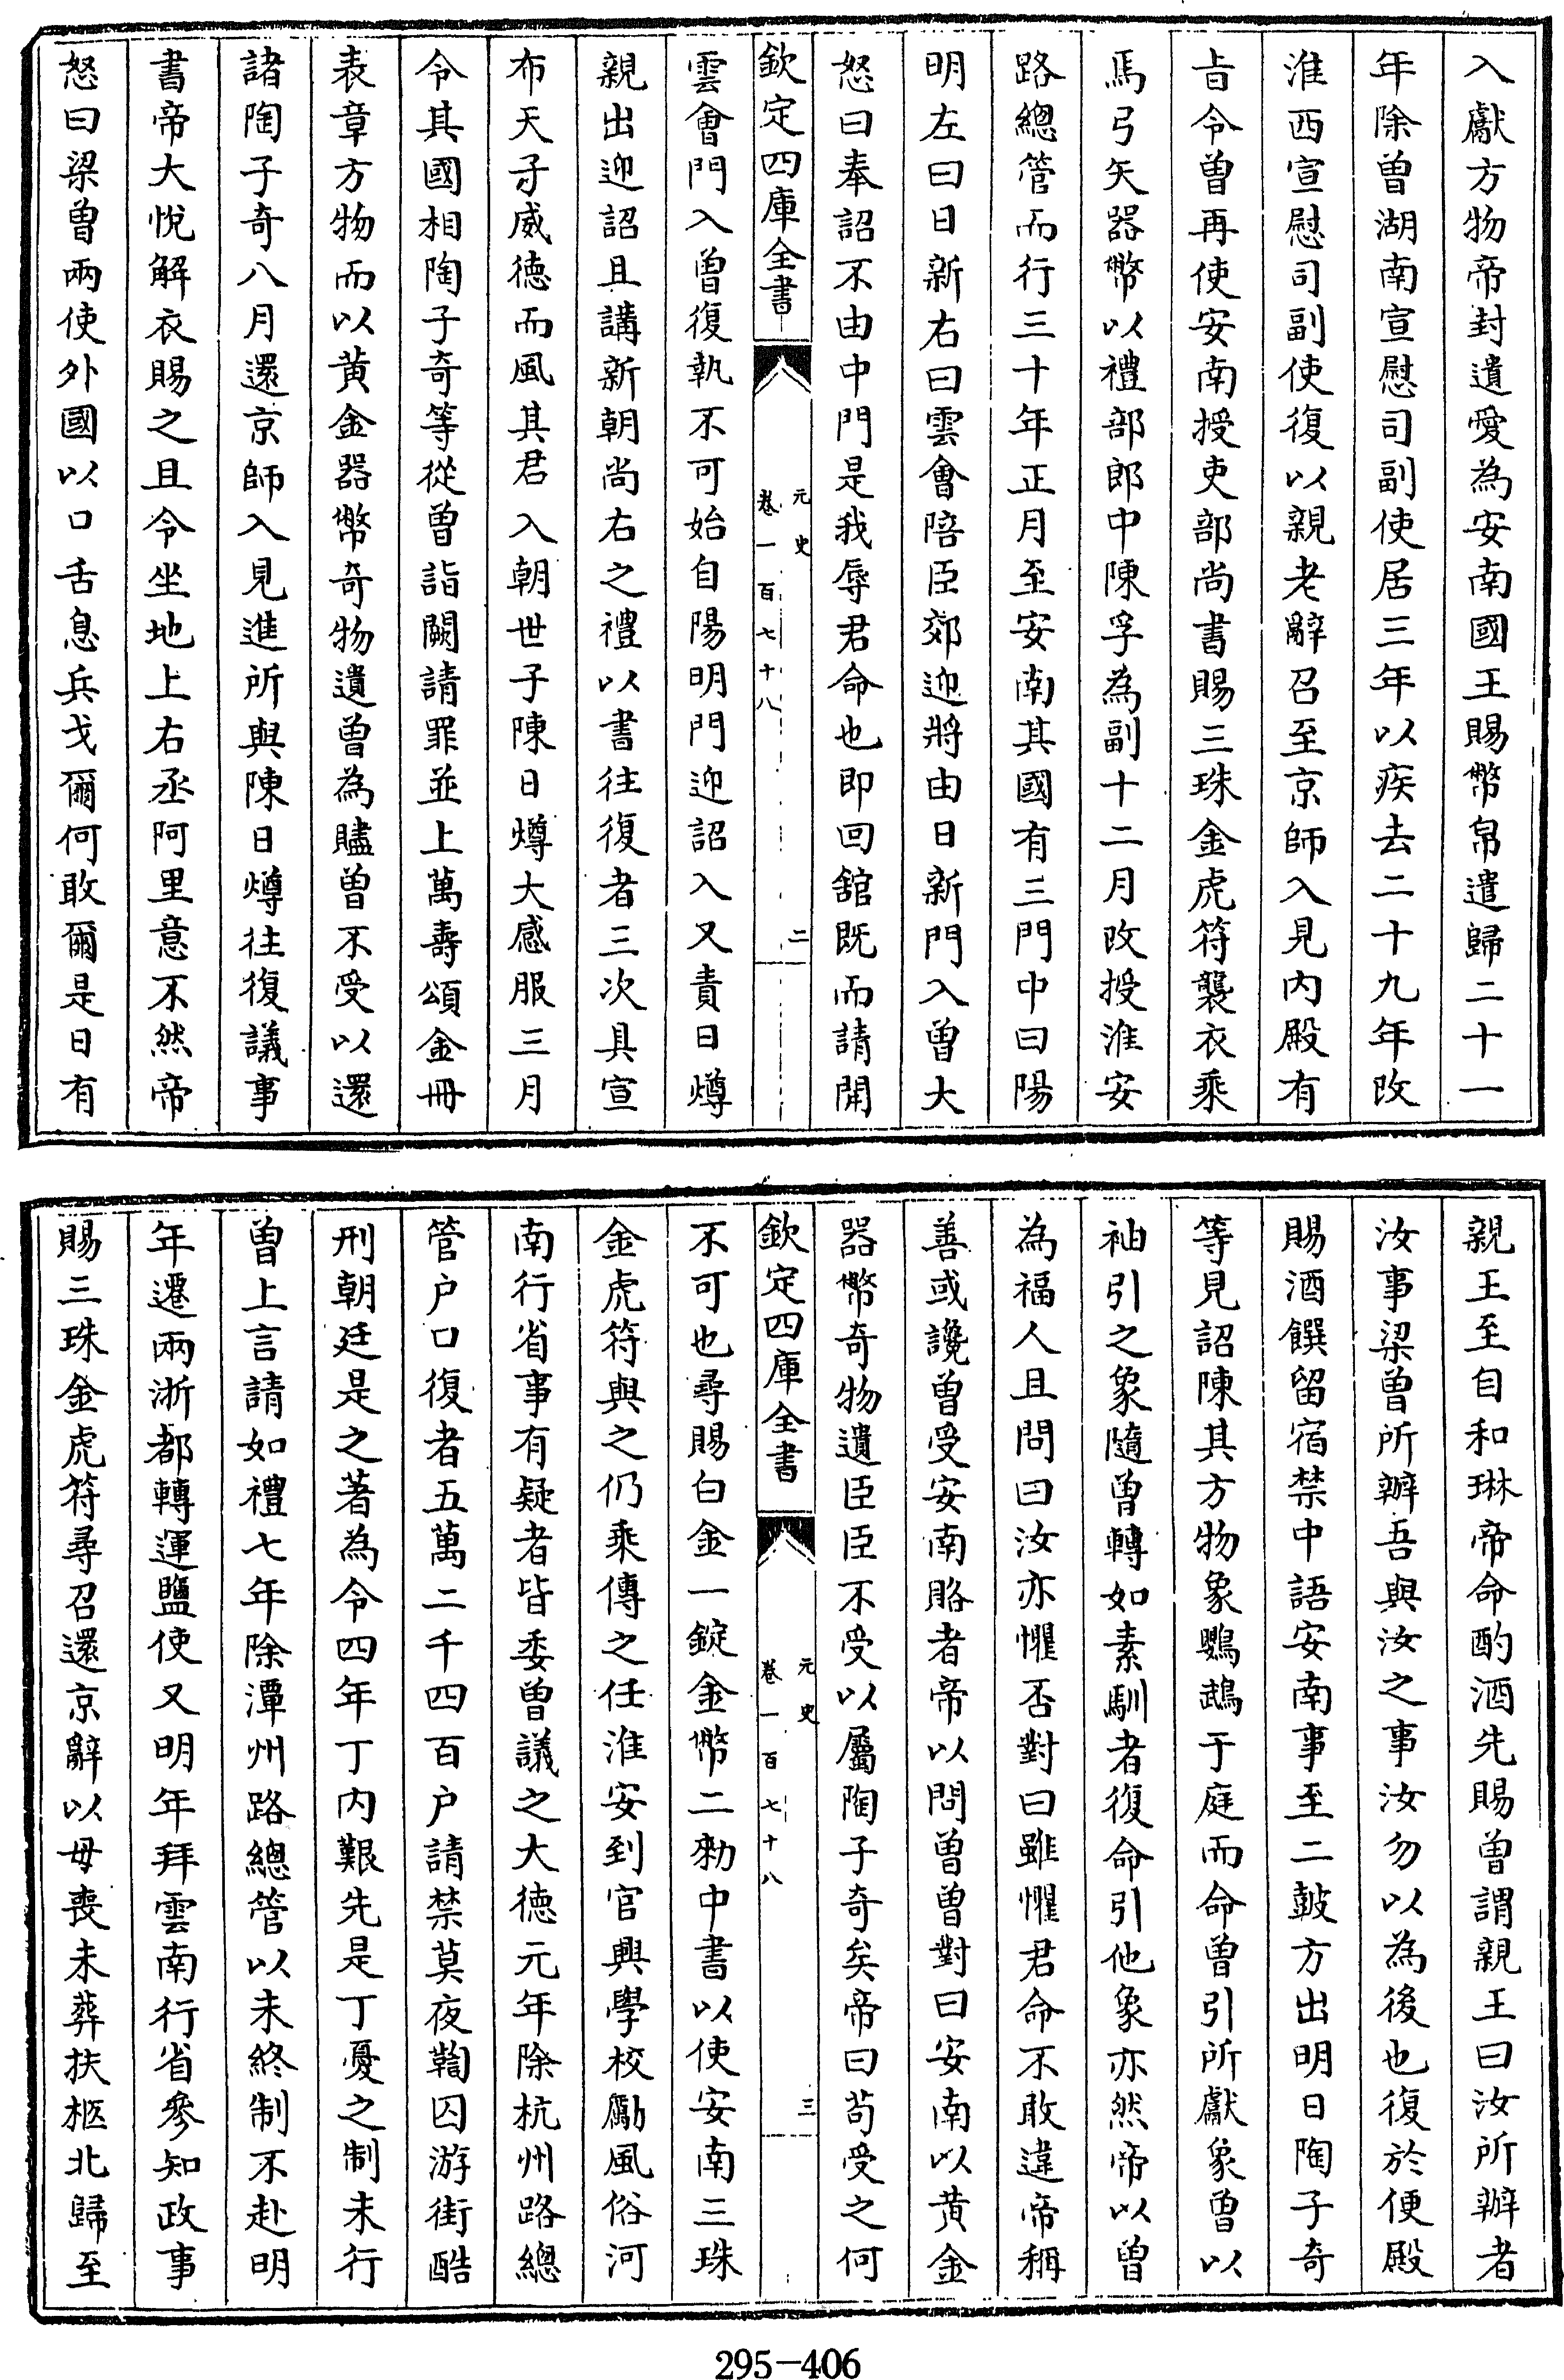 入獻方物帝封遺愛為安南國王賜幣帛遣歸二十一
年除曾湖南宣慰司副使居三年以疾去二十九年改
淮西宣慰司副使復以親老辭召至京師入見内殿有
旨令曾再使安南授吏部尚書賜三珠金虎符襲衣乘
馬弓矢器幣以禮部郎中陳孚為副十二月改授淮安
路總管而行三十年正月至安南其國有三門中曰陽
明左曰日新右曰雲會陪臣郊迎將由日新門入曾大
怒曰奉詔不由中門是我辱君命也即回舘既而請開
欽定四庫全書
元史
卷一百七十八
二
雲會門入曾復執不可始自陽明門迎詔入又責日燇
親出迎詔且講新朝尚右之禮以書往復者三次具宣
布天子威德而風其君入朝世子陳日燇大感服三月
令其國相陶子奇等從曾詣闕請罪並上萬壽頌金冊
表章方物而以黄金器幣奇物遺曾為贐曾不受以還
諸陶子奇八月還京師入見進所與陳日燇往復議事
書帝大悅解衣賜之且令坐地上右丞阿里意不然帝
怒曰梁曾兩使外國以口舌息兵戈爾何敢爾是日有
親王至自和琳帝命酌酒先賜曾謂親王曰汝所辦者
汝事梁曾所辦吾與汝之事汝勿以為後也復於便殿
賜酒饌留宿禁中語安南事至二鼓方出明日陶子奇
等見詔陳其方物象鸚鵡于庭而命曾引所獻象曾以
袖引之象隨曾轉如素馴者復命引他象亦然帝以曾
為福人且問曰汝亦懼否對曰雖懼君命不敢違帝稱
善或讒曾受安南賂者帝以問曾曾對曰安南以黄金
器幣奇物遺臣臣不受以屬陶子奇矣帝曰苟受之何
欽定四庫全書
元史
卷一百七十八
三
不可也尋賜白金一錠金幣二勑中書以使安南三珠
金虎符與之仍乘傳之任淮安到官興學校勵風俗河
南行省事有疑者皆委曾議之大德元年除杭州路總
管户口復者五萬二千四百户請禁莫夜鞫囚游街酷
刑朝廷是之著為令四年丁内艱先是丁憂之制未行
曾上言請如禮七年除潭州路總管以未終制不赴明
年遷兩浙都轉運鹽使又明年拜雲南行省參知政事
賜三珠金虎符尋召還京辭以母喪未葬扶柩北歸至
295-406